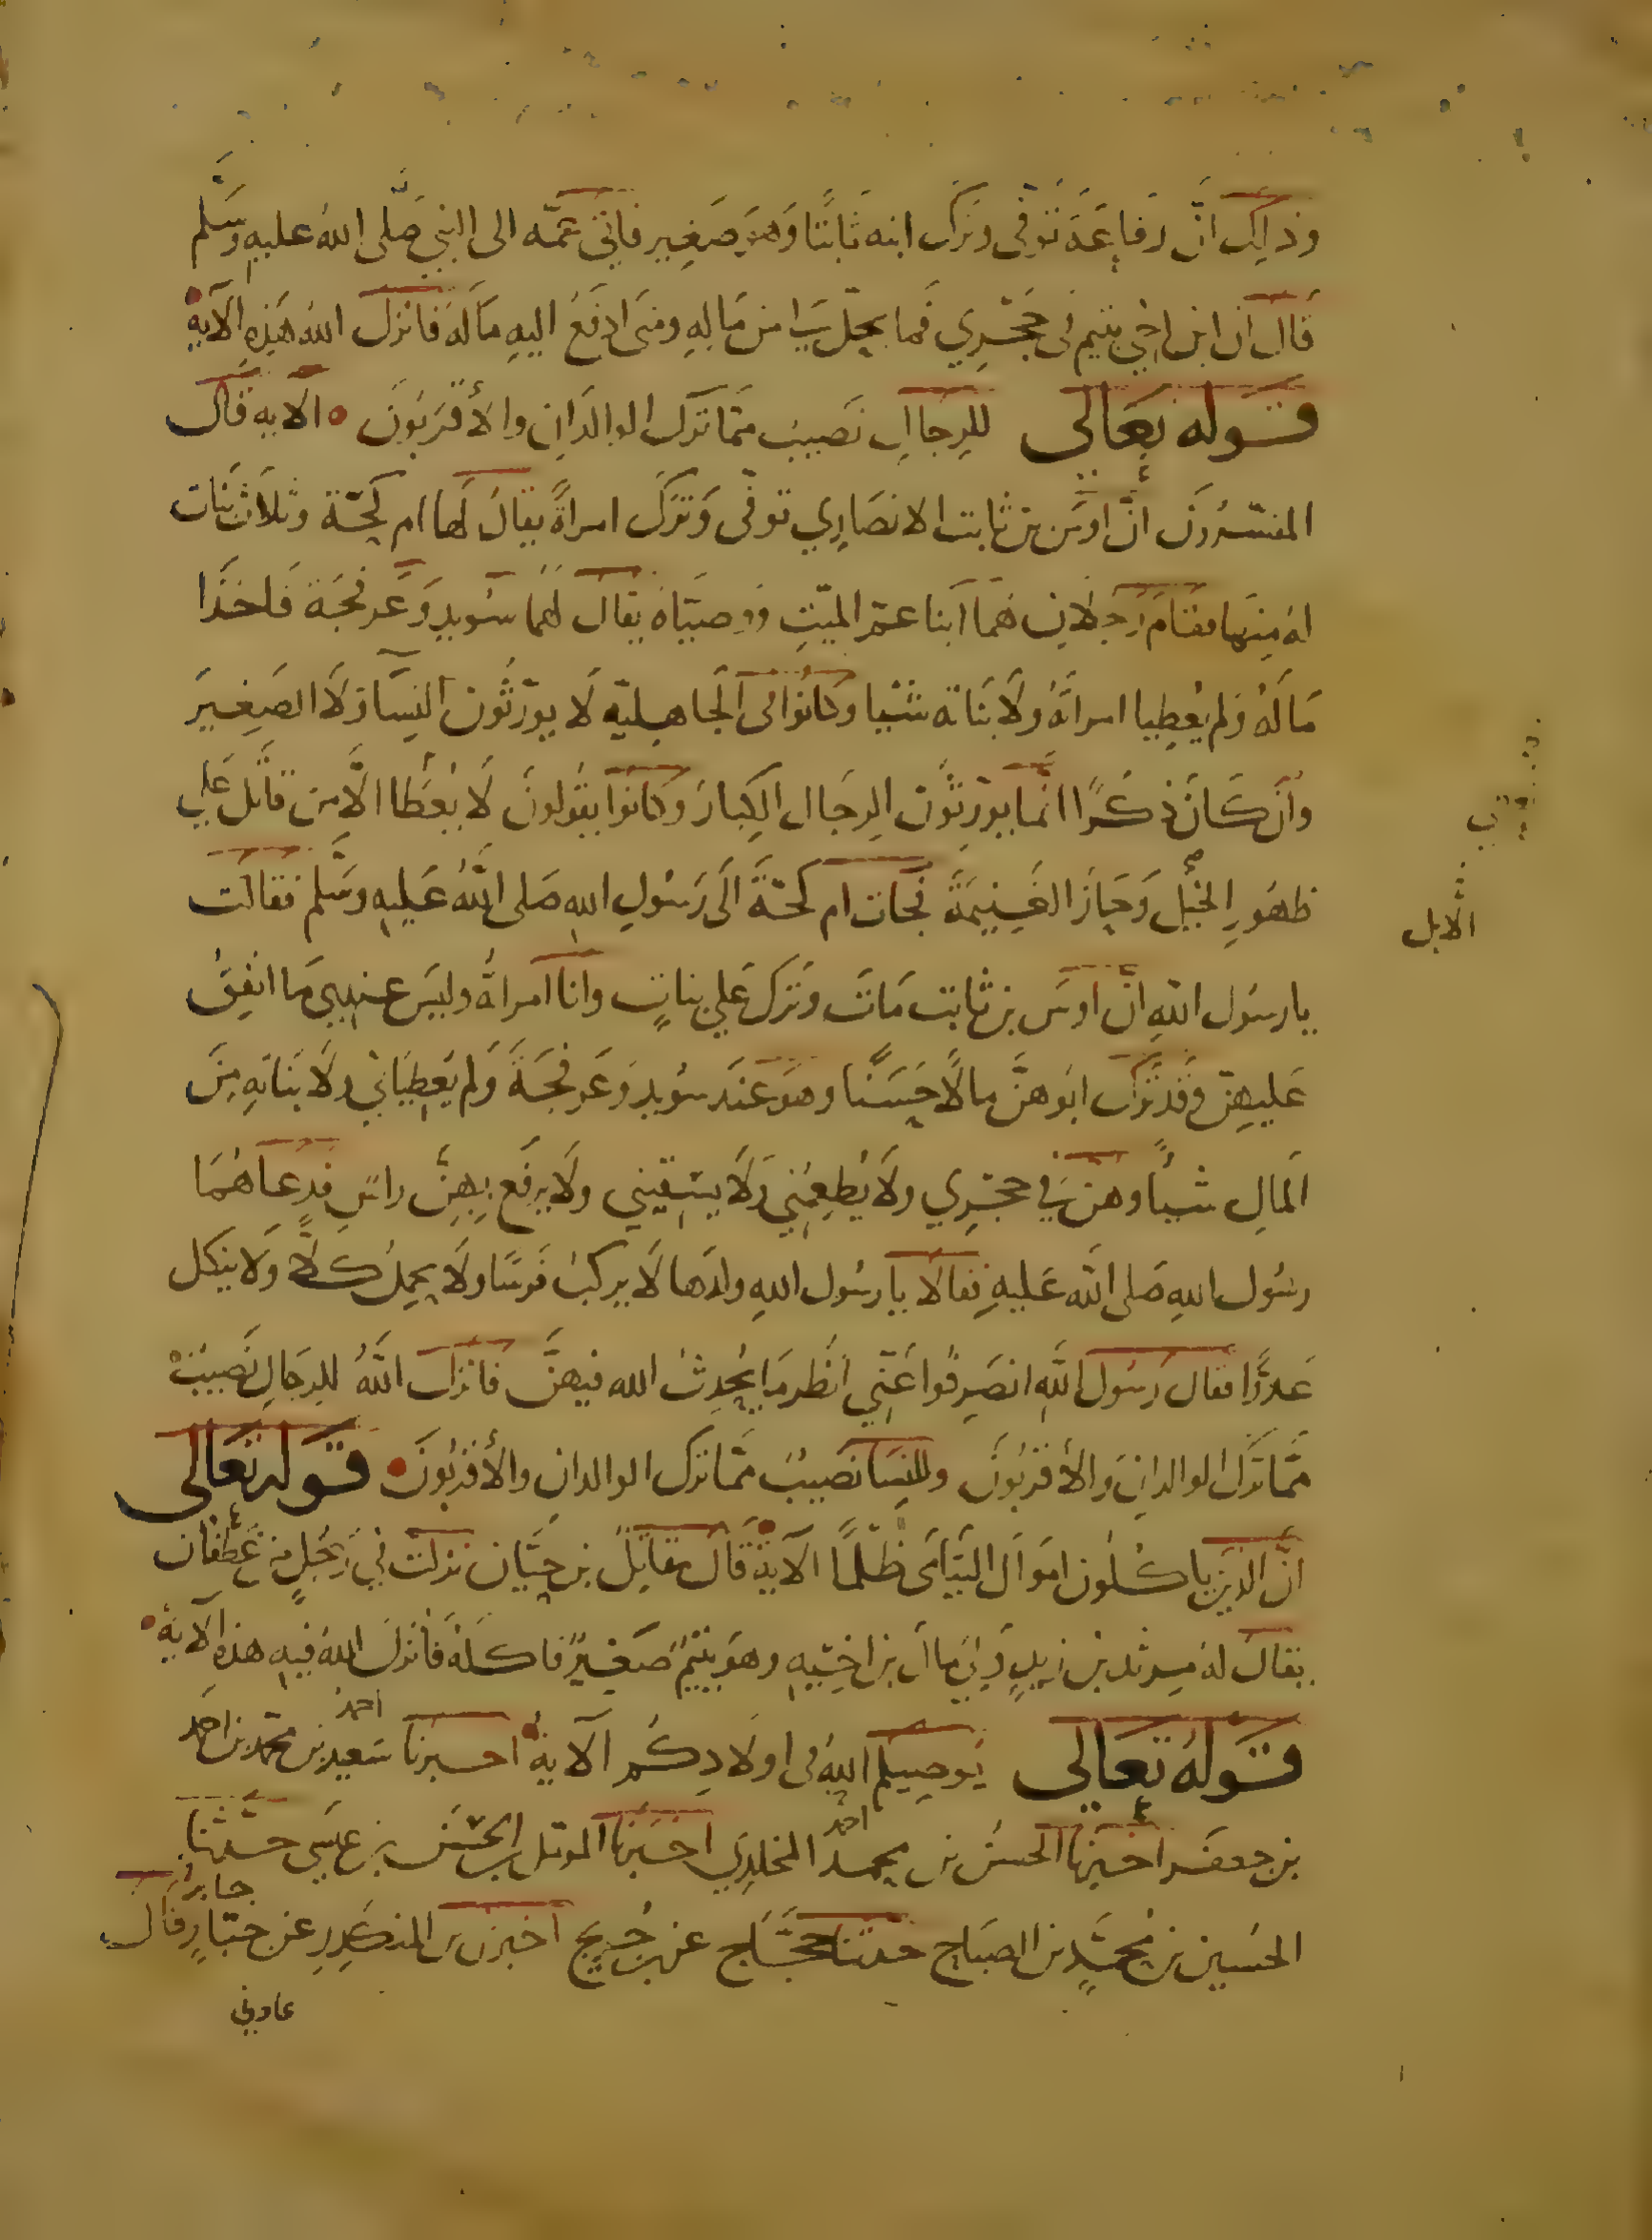 وذلك انّ رفاعَةَ تُوُفّى وتَرَك ابنه ثابتًا وَهوَ صَغِير فاتى عمّه الى النبي صَلّى الله عليه وسَلّم
قَال ان ابن اخِي يتيم فى حَجْرِي فما يحلّ لى من مَالِهِ ومتى ادفَعُ اليهِ مَالَهُ فانزل الله هَذِهِ الآيةُ
قَوله تَعَالى للرِجَالِ نَصَيبٌ ممّا ترك الوالدَانِ والأقْرَبُونَ الآية قَالَ
المفسّرُونَ انّ اوسَ بن ثابت الانصَارِي توفى وَتَرَكَ امراةً يقالُ لَها ام كَحّة وثلاث بَنَات
لهُ مِنها فقامَ رَجُلانِ هُمَا ابنا عمّ الميّتِ ووصيّاهُ يقال لهُما سُويد وَعَرفجَة فَاخذَا
مَالَهُ ولم يُعطِيا امراتَهُ ولَا بَنَاته شيْيا وكانوا فى الجَاهِليّه لَا يورّثُون النِسَا ولَا الصَغِيرَ
وَان كَانَ ذكَرًا انّما يوَرِثُون الرِجَال الكِبارَ وكانوا يقُولونَ لَا يُعْطَا الّا من قاتل عَلى
ظهورِ الخيْل وَحَازَ الغَنِيمَةَ فجَات ام كحّةَ الَى رَسُولِ اللهِ صَلى اللهُ عَليه وسَلّم فقالَت
الابل
يا رسُول اللهِ انّ اوسَ بن ثابت مَاتَ وتَرَك عَلي بناتٍ وانا امراةٌ وليسَ عندِي مَا انفِقُ
عَليهِنّ وقَد تَرَك ابُوهنّ مالًا حَسَنًا وهوَ عندَ سُويد وَعَرفجَةَ وَلم يَعطِيَاني ولَا بَنَاتِهِ مِنَ
المَالِ شيًا وهنّ في حجْرِي ولَا يُطعِمُنِي ولَا يسَقيني ولَا يرفَع بِهِنّ راسٍ فدعَاهُمَا
رسُول اللهِ صَلى الله عَليهِ فقالَا يا رسُول اللهِ ولدُها لَا يركبُ فَرسًا ولَا يحمِلُ كلًّا ولَا ينكل
عَدوًّا فقال رَسُول اللهِ انصَرِفُوا عَنّي انْظُر مَا يُحدِثُ الله فيهنّ فانزل اللهُ للرِجَالِ نَصيبٌ
مّمّا تَرَك الوالدانِ والأقرَبُونَ وللنِسَا نَصيبٌ ممّا ترك الوالدانِ والأقرَبُونَ قَوله تَعَالى
انّ الذين ياكُلُون امَوال اليَتَامَى ظلمًا الآيةَ قَال مقاتِلُ بن حيّان نزلت في رَجُلٍ من غَطَفان
يقال لهُ مرثد بن زيدٍ وَلِيَ مال بن اخيه وهو يتيمٌ صَغيرٌ فاكلَهُ فانزل اللهُ فيه هذه الآيةُ
قَولهُ تَعَالى يُوصِيكم اللهُ فى اولادِكُم الآيةُ اخبرنا سَعيد بن محمّد بن احمد احمد
بن جعفر اخبرنَا الحسنُ بن احمد محمد المخلدِي اخبَرنا المومّل بن الحسَن بن عيسَى حدّثنا
الحُسين بن مُحمَّدٍ بن الصبَاحِ حدثنَا حجَّاج عن بن جُريجٍ اخبرنى بن المنكدِرِ عن جابر قال
عادني